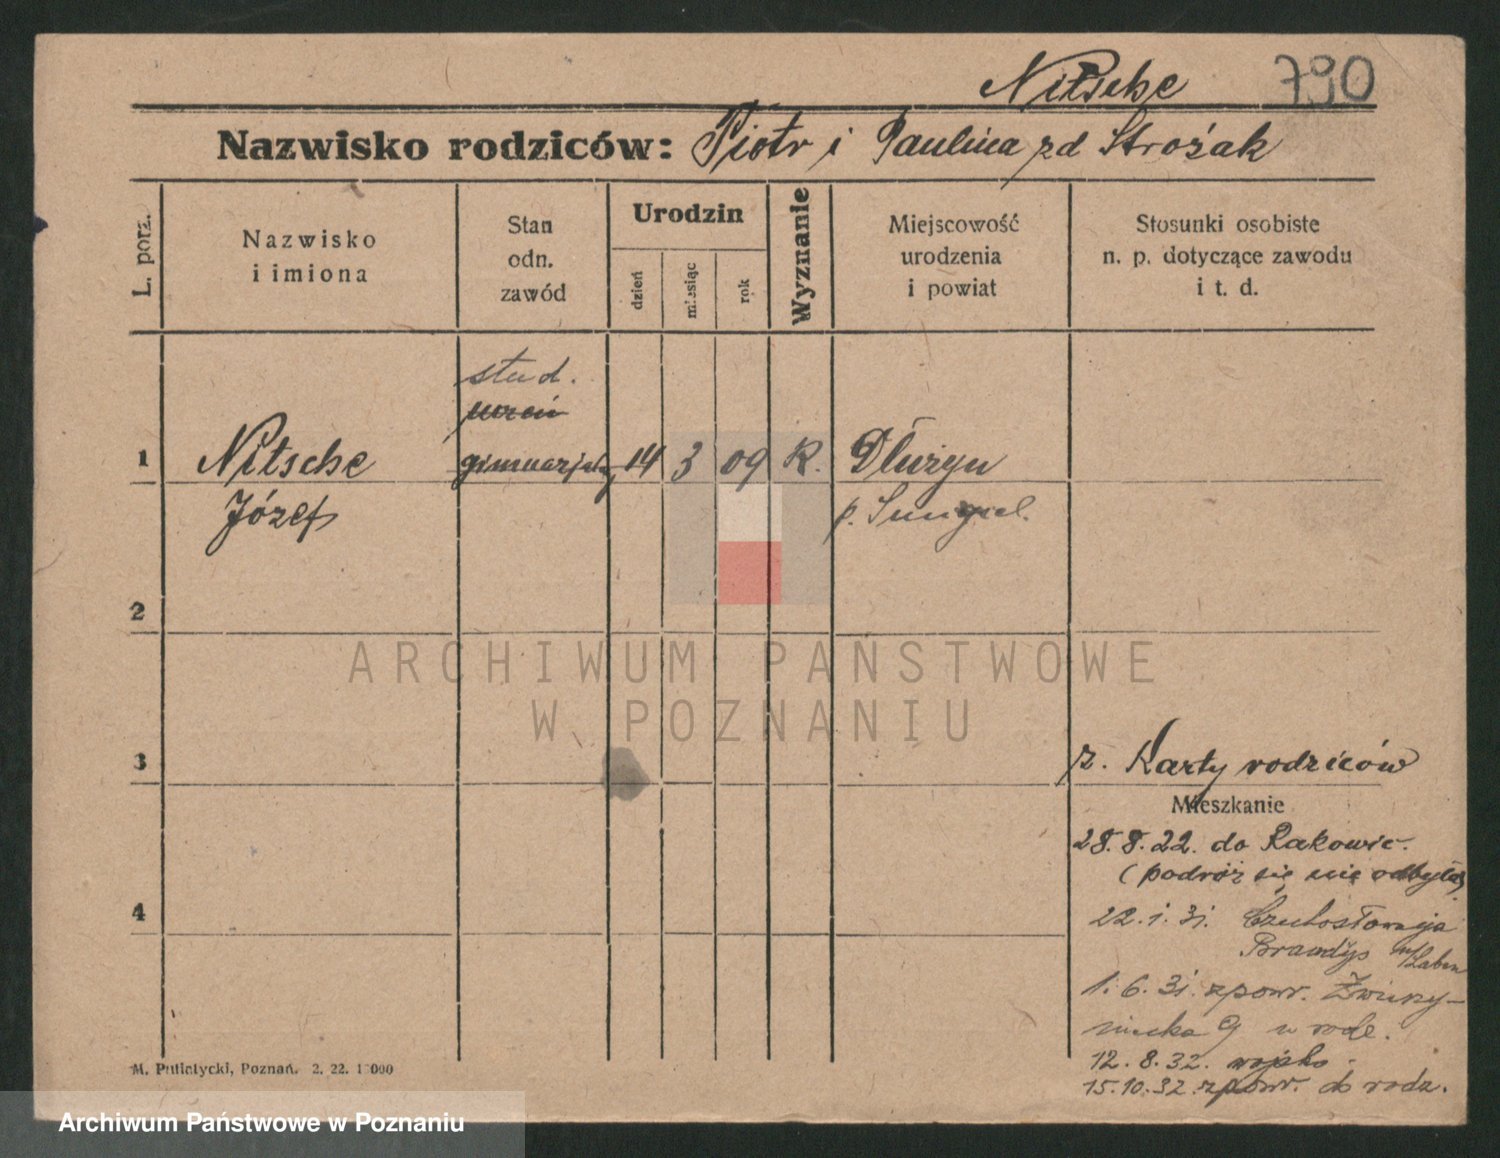 Nitsche 790
Nazwisko rodziców: Piotr i Paulina zd Stróżak
L. porz.
Nazwisko
i imiona
Stan
odn.
zawód
Urodzin
dzień
miesiąc
rok
Wyznanie
Miejscowość
urodzenia
i powiat
Stosunki osobiste
n. p. dotyczące zawodu
i t. d.
stud.
uczeń
1 Nitsche gimnazjalny 14 3 09 K. Dłużyn
Józef p. Smigiel.
2
3
z. Karty rodziców
Mieszkanie
28.8.22. do Rakowic.
(podróż się nie odbyła)
4
22.1.31. Czechosłowacja
Brandýs n/Laben
1.6.31. zpowr. Zwierzy-
niecka 9 u rodz.
12.8.32. wojsko.
15.10.32. zpowr. do rodz.
M. Putiatycki, Poznań. 2. 22.
ARCHIWUM PAŃSTWOWE
W POZNANIU
Archiwum Państwowe w Poznaniu